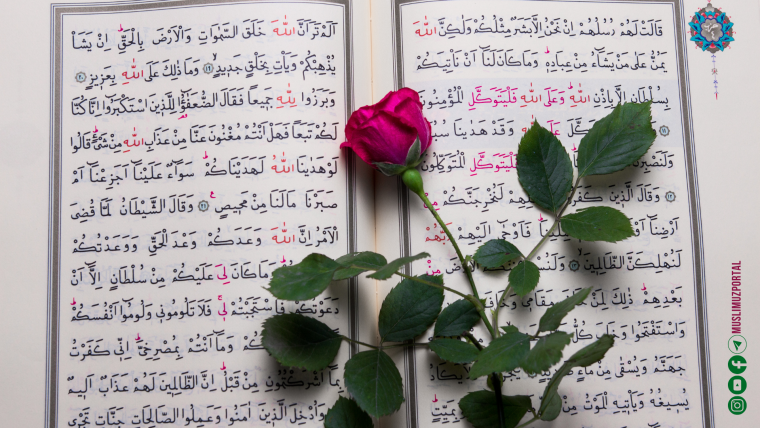 قَالَتْ لَهُمْ رُسُلُهُمْ اِنْ نَحْنُ اِلَّا بَشَرٌ مِثْلُكُمْ وَلٰكِنَّ اللّٰهَ
يَمُنُّ عَلٰى مَنْ يَشَٓاءُ مِنْ عِبَادِهٖ وَمَا كَانَ لَنَٓا اَنْ نَأْتِيَكُمْ
بِسُلْطَانٍ اِلَّا بِاِذْنِ اللّٰهِ وَعَلَى اللّٰهِ فَلْيَتَوَكَّلِ الْمُؤْمِنُونَ
عَلَى اللّٰهِ وَقَدْ هَدٰينَا
وَلَنَصْبِرَنَّ فَلْيَتَوَكَّلِ الْمُتَوَكِّلُونَ
وَقَالَ الَّذٖينَ لَنُخْرِجَنَّكُمْ مِنْ
اَرْضِنَٓا فَاَوْحٰٓى اِلَيْهِمْ رَبُّهُمْ
لَنُهْلِكَنَّ الظَّالِمٖينَ الْاَرْضَ مِنْ
بَعْدِهِمْ ذٰلِكَ لِمَنْ مَقَامٖي
وَاسْتَفْتَحُوا وَخَابَ كُلُّ
جَهَنَّمُ وَيُسْقٰى مِنْ مَٓاءٍ يَكَادُ
يُسٖيغُهُ وَيَأْتٖيهِ الْمَوْتُ مِنْ بِمَيِّتٍ
اَلَمْ تَرَ اَنَّ اللّٰهَ خَلَقَ السَّمٰوَاتِ وَالْاَرْضَ بِالْحَقِّ اِنْ يَشَأْ
يُذْهِبْكُمْ وَيَأْتِ بِخَلْقٍ جَدٖيدٍ ﴿١٩﴾ وَمَا ذٰلِكَ عَلَى اللّٰهِ بِعَزٖيزٍ ﴿٢٠﴾
وَبَرَزُوا لِلّٰهِ جَمٖيعًا فَقَالَ الضُّعَفٰٓؤُا لِلَّذٖينَ اسْتَكْبَرُٓوا اِنَّا كُنَّا
لَكُمْ تَبَعًا فَهَلْ اَنْتُمْ مُغْنُونَ عَنَّا مِنْ عَذَابِ اللّٰهِ مِنْ شَيْءٍ قَالُوا
لَوْ هَدٰينَا اللّٰهُ لَهَدَيْنَاكُمْ سَوَٓاءٌ عَلَيْنَٓا اَجَزِعْنَٓا اَمْ
صَبَرْنَا مَالَنَا مِنْ مَحٖيصٍ ﴿٢١﴾ وَقَالَ الشَّيْطَانُ لَمَّا قُضِيَ
الْاَمْرُ اِنَّ اللّٰهَ وَعَدَكُمْ وَعْدَ الْحَقِّ وَوَعَدْتُكُمْ
وَمَا كَانَ لِيَ عَلَيْكُمْ مِنْ سُلْطَانٍ اِلَّٓا اَنْ
دَعَوْتُكُمْ فَاسْتَجَبْتُمْ لٖي فَلَا تَلُومُونٖي وَلُومُٓوا اَنْفُسَكُمْ
وَمَٓا اَنْتُمْ بِمُصْرِخِيَّ اِنّٖي كَفَرْتُ
بِمَٓا اَشْرَكْتُمُونِ مِنْ قَبْلُ اِنَّ الظَّالِمٖينَ لَهُمْ عَذَابٌ اَلٖيمٌ
وَاُدْخِلَ الَّذٖينَ اٰمَنُوا وَعَمِلُوا الصَّالِحَاتِ جَنَّاتٍ تَجْرٖي
MUSLIMUZPORTAL